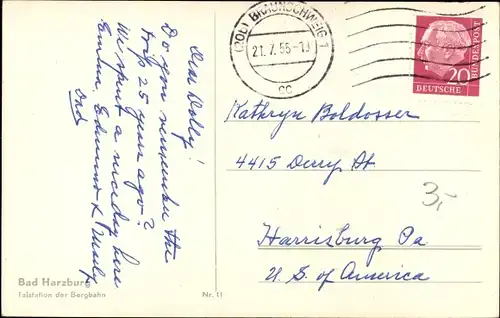 Dear Dolly!
Do you remember the
trip 25 years ago?
We spent a nice day here
Emma, Edmund &
and
(20b) BRAUNSCHWEIG 1
21. 7. 55 - 19
cc
20
DEUTSCHE
BUNDESPOST
Kathryn Boldosser
4415 Derry St.
Harrisburg Pa
U. S. of America
3,-
Bad Harzburg
Talstation der Bergbahn
Nr. 11